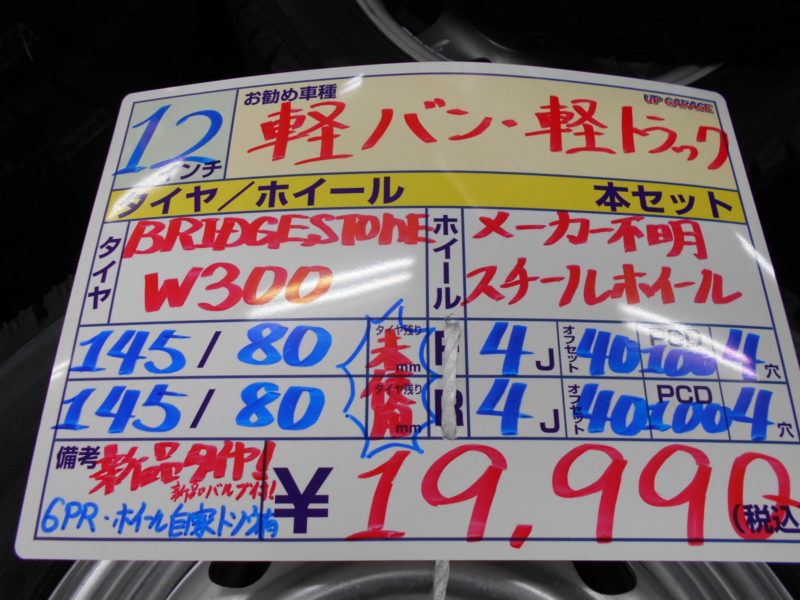 お勧め車種
UP GARAGE
12インチ
軽バン・軽トラック
タイヤ/ホイール 本セット
タイヤ BRIDGESTONE W300
ホイール メーカー不明 スチールホイール
145/80 タイヤ残り mm F 4J オフセット 40 PCD 100 4穴
145/80 タイヤ残り mm R 4J オフセット 40 PCD 100 4穴
備考 新品タイヤ!
新品バルブ付!
6PR・ホイール自家トソウ有
¥19,990
(税込